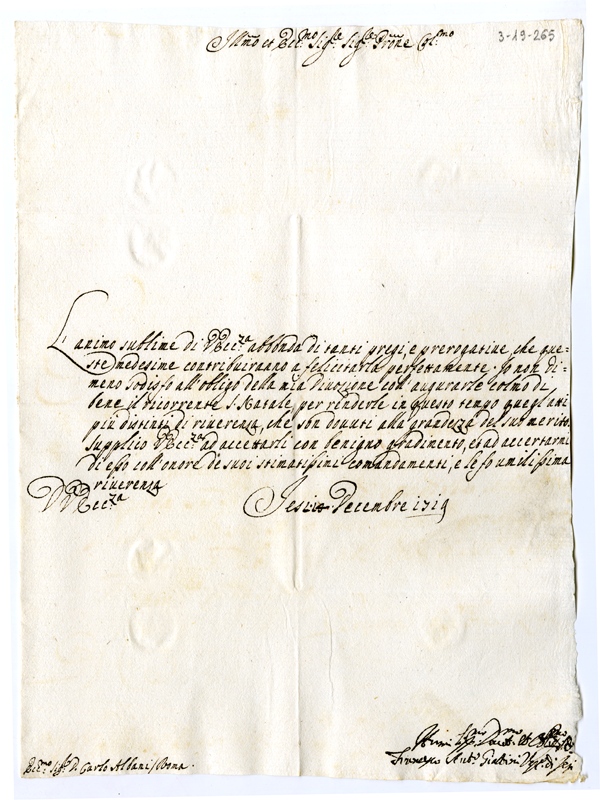 3-19-265
Illmo et Ecc.mo Sig.re Sig.re Prone Col.mo
L'animo sublime di V Ecc.za abbonda di tanti pregi, e prerogative, che que=
ste medesime contribuiranno a felicitarla perfettamente. Io non di=
meno sodisfo all'obligo della mia divozione con augurarle colmo di
bene il ricorrente S. Natale, per renderle in questo tempo quegl'atti
più distinti di riverenza, che son dovuti alla grandezza del suo merito.
Supplico V Ecc.za ad accettarli con benigno gradimento, et ad accertarmi
di esso coll'onore de suoi stimatissimi comandamenti, e le fo umilissima
riverenza
D V Ecc.za
Jesi Decembre 1719
Ecc.mo Sig.r D. Carlo Albani / Roma.
Francesco Ant.o